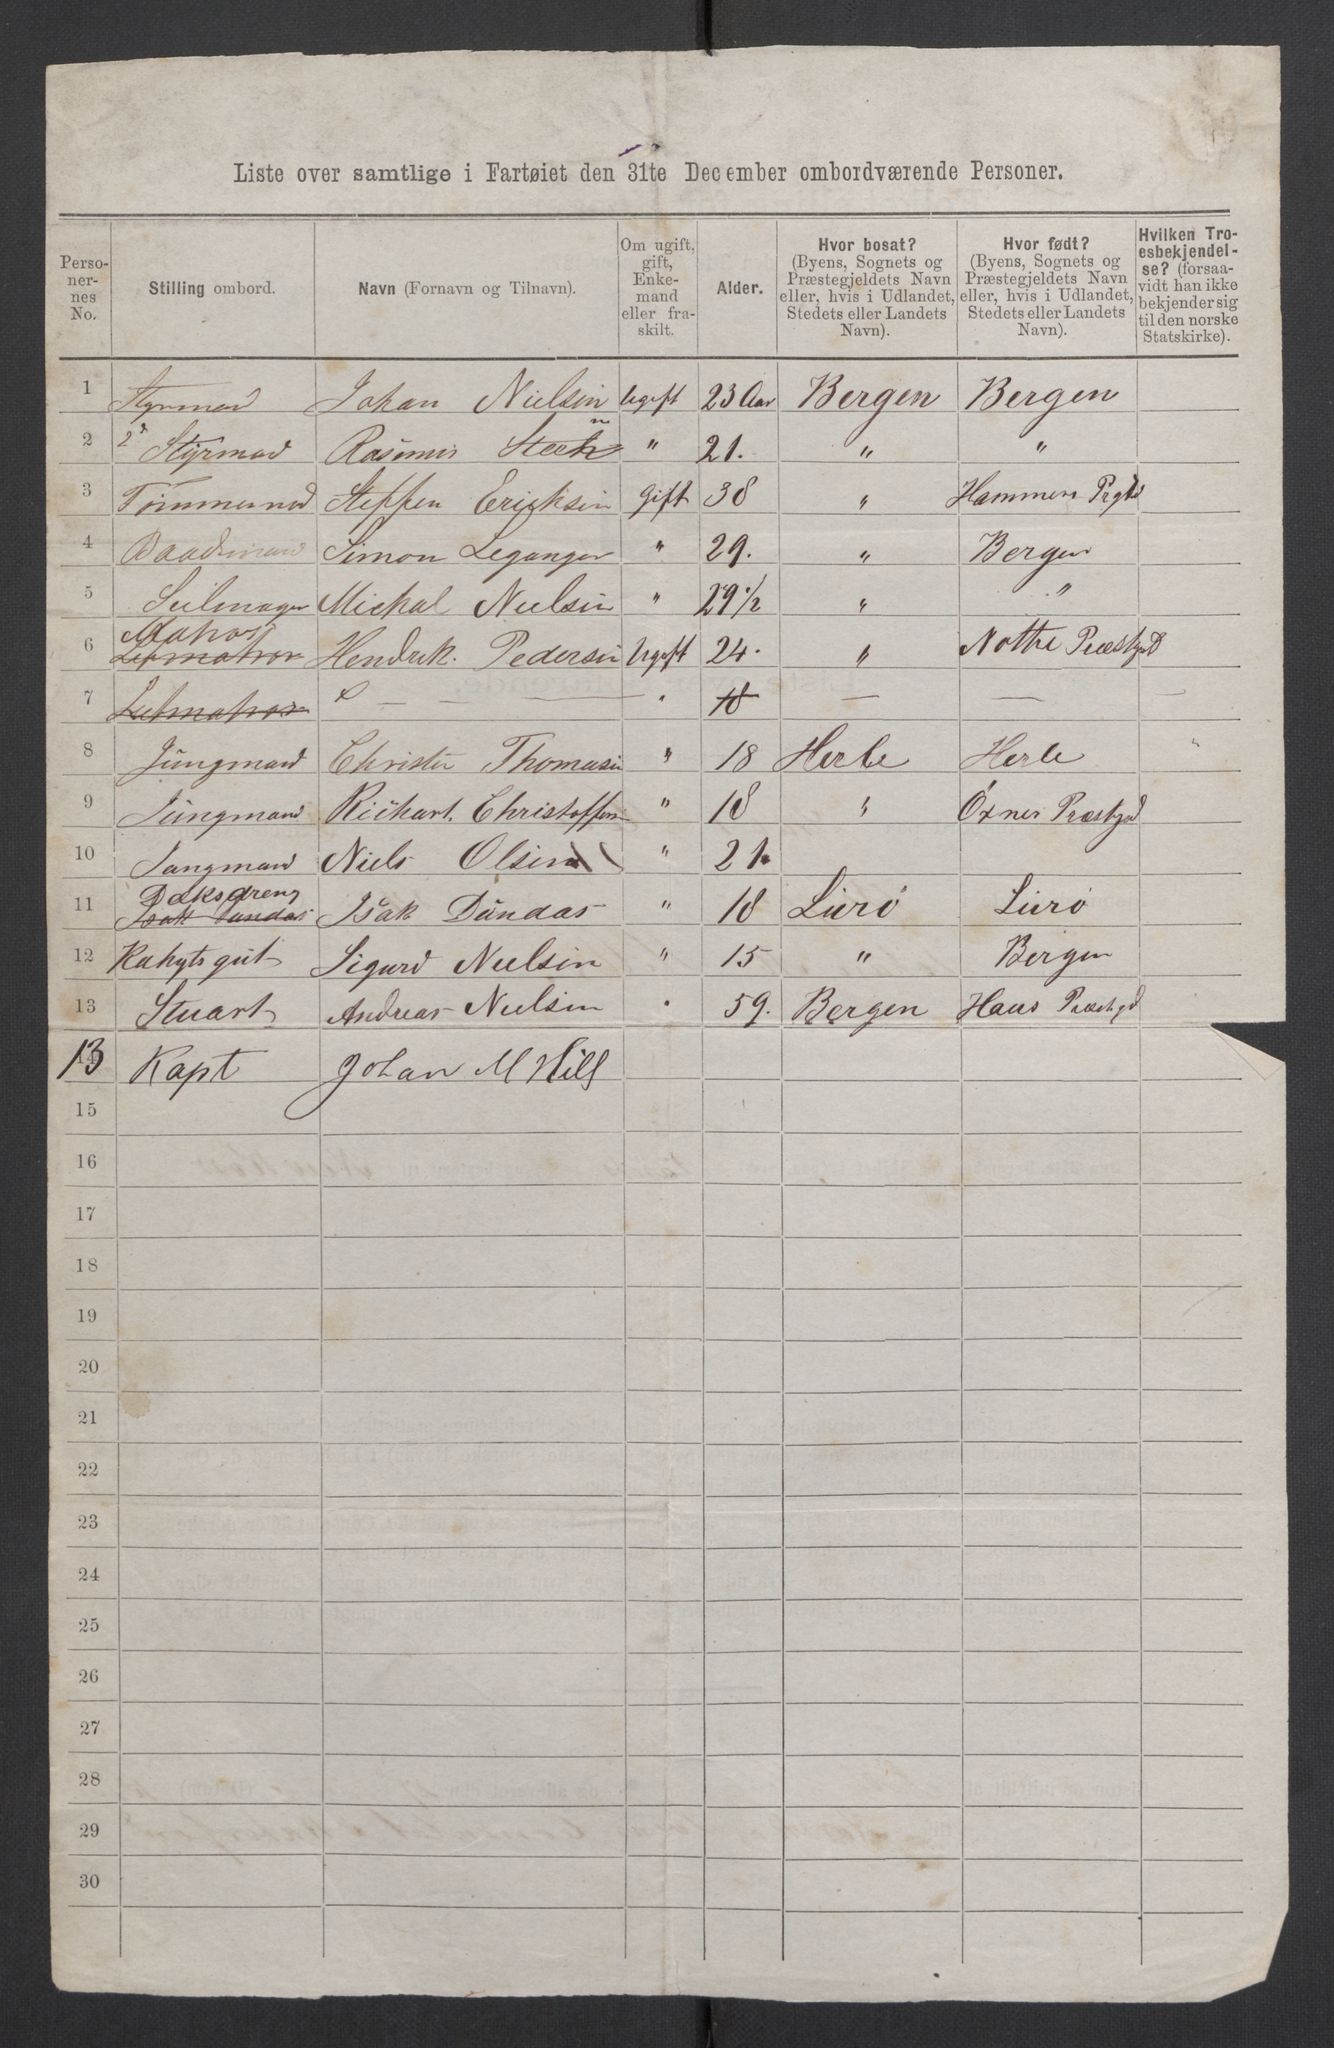 Liste over samtlige i Fartøiet den 31te December ombordværende Personer.
Perso-
ner-
nes
No.
Stilling ombord.
Navn (Fornavn og Tilnavn).
Om ugift,
gift,
Enke-
mand
eller fra-
skilt.
Alder.
Hvor bosat?
(Byens, Sognets og
Præstegjeldets Navn
eller, hvis i Udlandet,
Stedets eller Landets
Navn).
Hvor født?
(Byens, Sognets og
Præstegjeldets Navn
eller, hvis i Udlandet,
Stedets eller Landets
Navn).
Hvilken Tro-
esbekjendel-
se? (forsaa-
vidt han ikke
bekjender sig
til den norske
Statskirke).
1 Styrmand Johan Nielsen Ugift 23 Aar Bergen Bergen
2 2d Styrmand Rasmus " 21. " "
3 Tømmermand Steffen Ericksen Gift 38 " Hammers Prgld
4 Baadsmand Simon Leganger " 29. " Bergen
5 Seilmager Michal Nielsen " 29 1/2 " "
6 Matros Letmatros Hendrek. Pedersen Ugift 24. " Præstgjd
7 Letmatros — — — " 18 — — —
8 Jungmand Christen Thomasen " 18 Herle Herle "
9 Jungmand Richart. Christoffersen " 18 " Præstgjd
10 Jungmand Niels Olsen " 21.
11 Dæksdreng Isak Dundas Isak Dundas " 18 Lurø Lurø
12 Kahytsgut Sigurd Nielsen " 15 " Bergen
13 Stuart Andreas Nielsen " 59. Bergen Haus Præstgjd
13 14 Kapt Johan M Hill
15
16
17
18
19
20
21
22
23
24
25
26
27
28
29
30